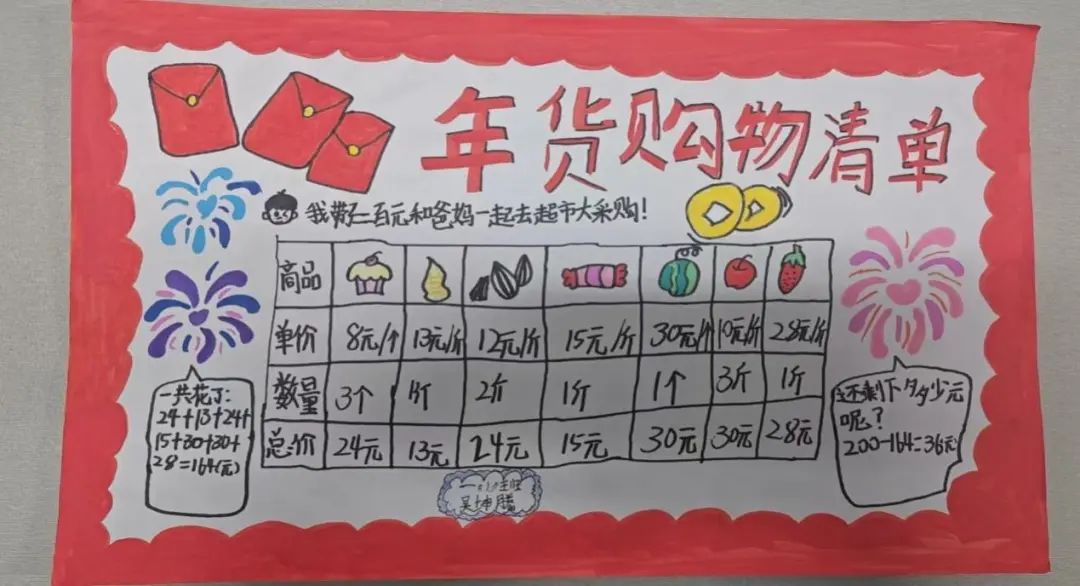 年货购物清单
我带二百元和爸妈一起去超市大采购！
商品
单价 8元/个 13元/斤 12元/斤 15元/斤 30元/个 10元/斤 28元/斤
数量 3个 1斤 2斤 1斤 1个 3斤 1斤
总价 24元 13元 24元 15元 30元 30元 28元
一共花了:
24+13+24+
15+30+30+
28=164(元)
还剩下多少元
呢？
200-164=36元